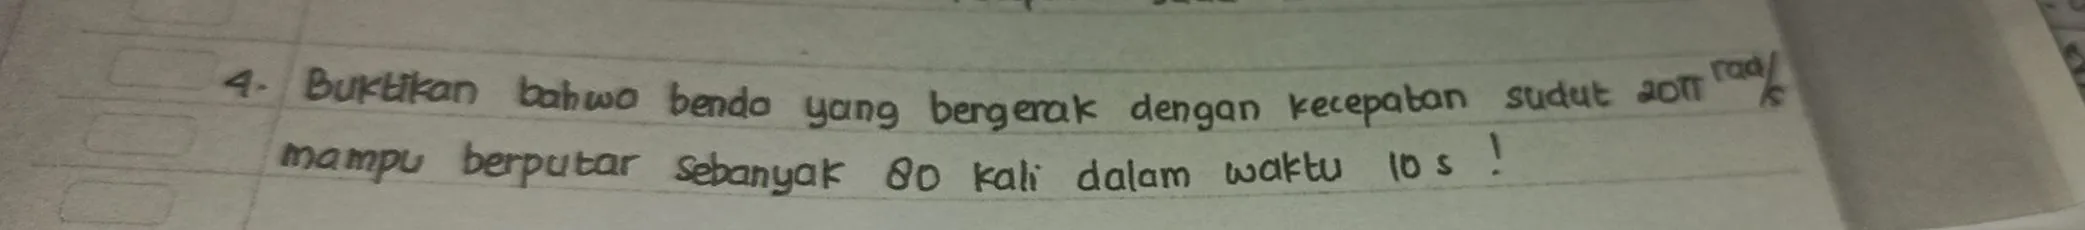 4. Buktikan bahwa benda yang bergerak dengan kecepatan sudut 20π rad/s
mampu berputar sebanyak 80 kali dalam waktu 10 s !